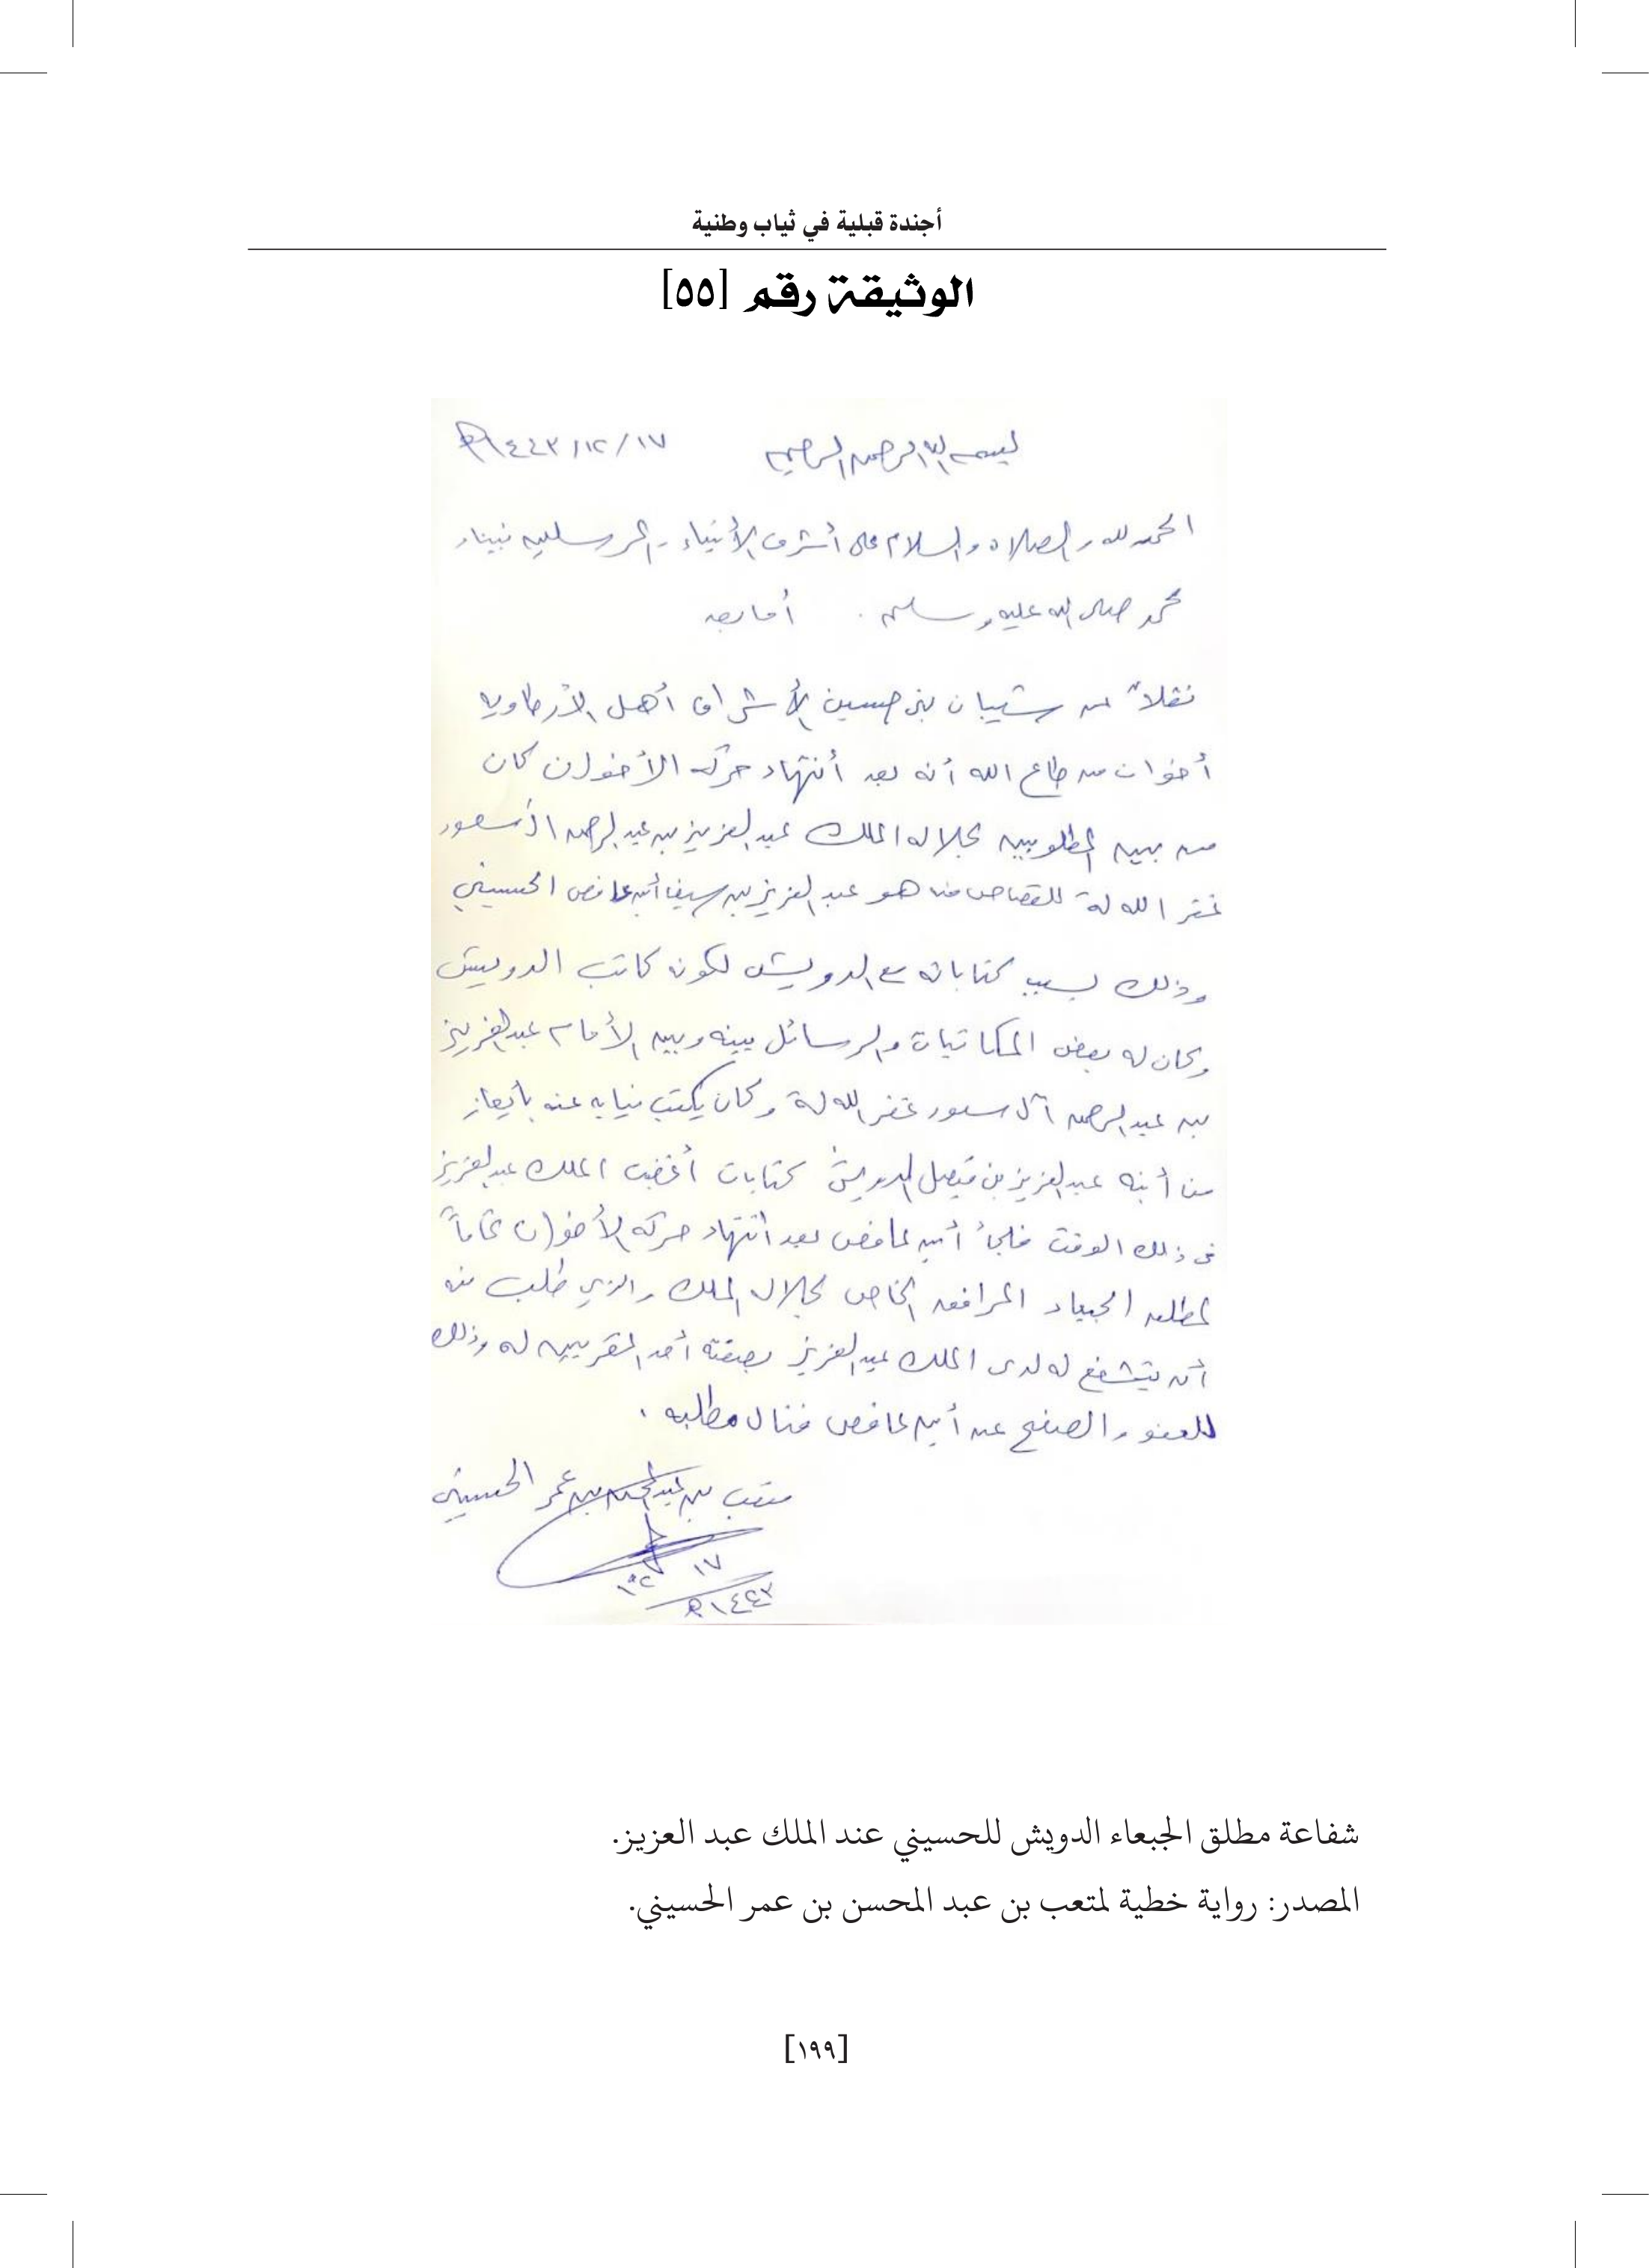 أجندة قبلية في ثياب وطنية
الوثيقة رقم [٥٥]
بسم الله الرحمن الرحيم ١٤٤٣/١٢/١٧هـ
الحمد لله والصلاه والسلام على أشرف الأنبياء والمرسلين نبينا
محمد صلى الله عليه وسلم . أما بعد
نقلاً عن شيبان بن حسين الأشراف أهل الأرطاويه
أخوان من طاع الله أنه بعد أنتهاء حركه الأخوان كان
من بين المطلوبين لجلاله الملك عبدالعزيز بن عبدالرحمن السعود
غفر الله لة للقصاص منه هو عبدالعزيز بن سيف الحسيني
وذلك بسبب كتاباته مع الدويش لكونه كاتب الدويش
وكان له بعض المكاتبات والرسائل بينه وبين الأمام عبدالعزيز
بن عبدالرحمن آل سعود غفر الله لة وكان يكتب نيابه عنه بأيعاز
من أبنه عبدالعزيز بن فيصل الدويش كتابات أغضبت الملك عبدالعزيز
في ذلك الوقت فلجأ بعد انتهاء حركه الأخوان تماماً
لمطلق الجبعاء المرافق الخاص لجلاله الملك والذي طلب منه
أن يتشفع له لدى الملك عبدالعزيز بصفته أحد المقربين له وذلك
للعفو والصفح عن فنال مطلبه .
متعب بن عبدالمحسن بن عمر الحسيني
١٧
١٢
١٤٤٣هـ
شفاعة مطلق الجبعاء الدويش للحسيني عند الملك عبد العزيز.
المصدر: رواية خطية لمتعب بن عبد المحسن بن عمر الحسيني.
[١٩٩]